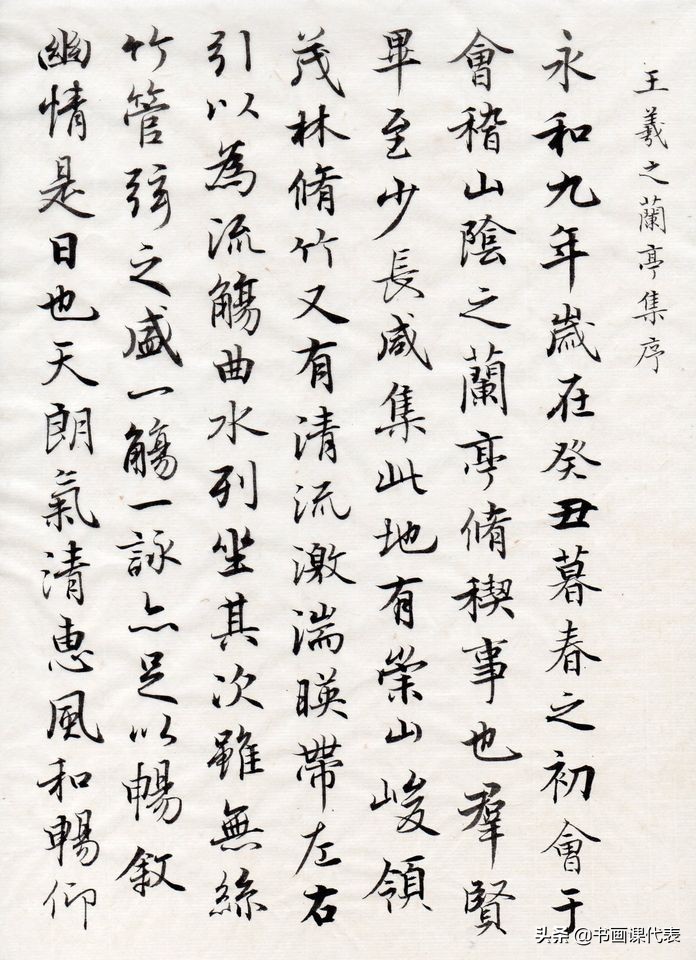 王羲之蘭亭集序
永和九年歲在癸丑暮春之初會于
會稽山陰之蘭亭脩稧事也羣賢
畢至少長咸集此地有崇山峻領
茂林脩竹又有清流激湍暎帶左右
引以為流觴曲水列坐其次雖無絲
竹管弦之盛一觴一詠亦足以暢敘
幽情是日也天朗氣清惠風和暢仰
头条 @书画课代表